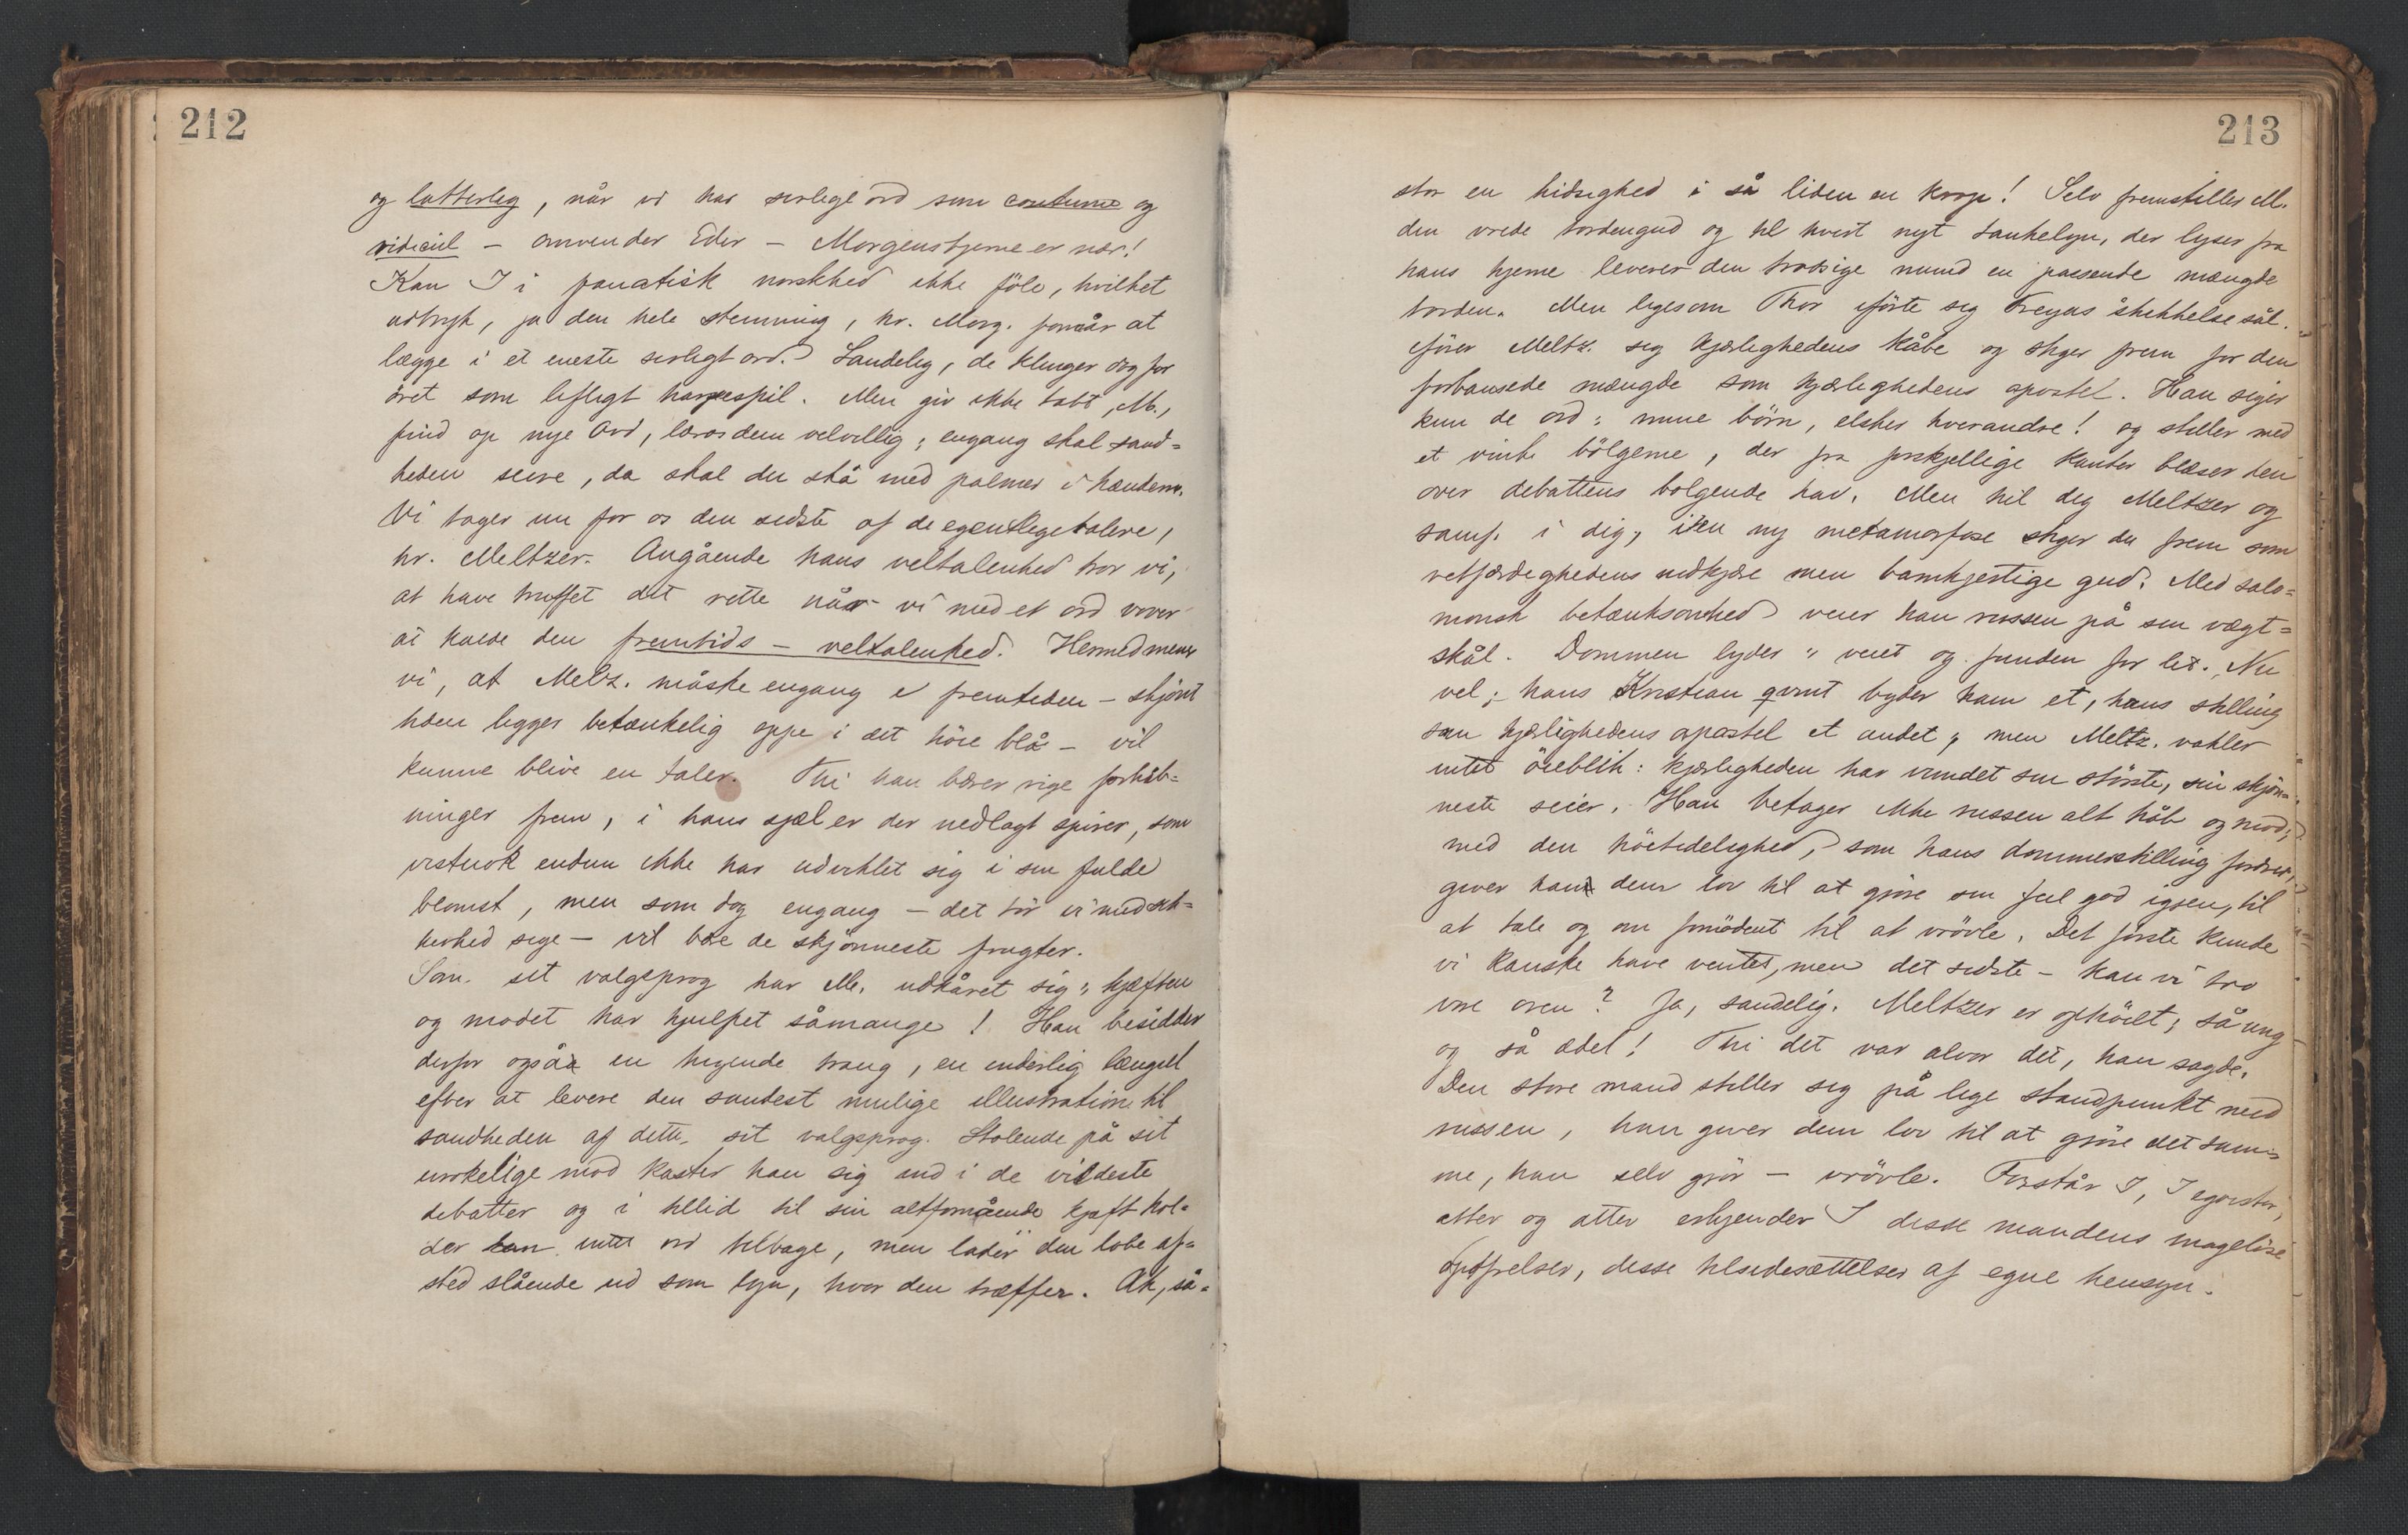 212
og latterlig, når vi har sirlige ord som coutume og
ridicul – omvender Eder – Morgenstjerne er nær!
Kan I i fanatisk norskhed ikke föle, hvilket
udtryk, ja den hele stemning, hr. Morg. formår at
lægge i et eneste sirligt ord. Sandelig, de klinger dog for
öret som lifligt harpespil. Men giv ikke tabt, M.,
find op nye Ord, lær os dem velvillig; engang skal sand=
heden seire, da skal du stå med palmer i hændern.
Vi tager nu for os den sidste af de egentlige talere,
hr. Meltzer. Angående hans veltalenhed tror vi,
at have truffet det rette når vi med et ord vover
at kalde den fremtids – veltalenhed. Hermed mener
vi, at Melz. måske engang i fremtiden – skjönt
hden ligger betænkelig oppe i det höie blå – vil
kunne blive en taler. Thi han bærer rige forhåb=
ninger frem, i hans sjæl er der nedlagt spirer, som
vistnok endnu ikke har udviklet sig i sin fulde
blomst, men som dog engang – det tör vi med sik=
kerhed sige – vil bære de skjönneste frugter.
Som sit valgsprog har M. udkåret sig: kjæften
og modet har hjulpet såmange! Han besidder
derfor også en higende trang, en inderlig længsel
efter at levere den sandest mulige illustration til
sandheden af dette sit valgsprog. Stolende på sit
urokelige mod kaster han sig ind i de vildeste
debatter og i tillid til sin altformående kjæft hol=
der han intet ord tilbage, men lader den löbe af=
sted slående ud som lyn, hvor den træffer. Ak, så=
213
stor en hidsighed i så liden en krop! Selv fremstiller M.
den vrede tordengud og til hvert nyt tankelyn, der lyser fra
hans hjerne leverer den trodsige mund en passende mængde
torden. Men ligesom Thor iförte sig Freyas
ifører Meltz. sig kjærlighedens kåbe og stiger frem for den
forbausede mængde som kjærlighedens apostel. Han siger
kun de ord: mine börn, elsker hverandre! og stiller med
et vink bölgerne, der fra forskjellige kanter blæser hen
over debattens bölgende hav. Men hil dig Meltzer og
samf. i dig, i en ny metamorfose stiger du frem som
retfærdighedens nidkjære men barmhjertige gud. Med salo=
monsk betænksomhed veier han russen på sin vægt=
skål. Dommen lyder: veiet og funden for let. Nu
vel; hans Kristian qvint byder ham et, hans stilling
som kjærlighedens apostel et andet; men Meltz. vakler
intet öieblik: kjærligheden har vundet sin störste, sin skjön=
neste seier. Han betager ikke russen alt håb og mod;
med den höitidelighed, som hans dommerstilling fordrer,
giver han dem lov til at gjöre sin feil god igjen, til
at tale og om fornödent til at vrövle. Det förste kunde
vi kanske have ventet, men det sidste – kan vi tro
vore oren? Ja, sandelig. Meltzer er ophöiet; så ung
og så ædel! Thi det var alvor det, han sagde.
Den store mand stiller sig på lige standpunkt med
russen, han giver dem lov til at gjöre det sam=
me, han selv gjör – vrövle. Forstår I, I egoister,
atter og atter erkjender I disse mandens magelöse
opofrelser, disse tilsidesættelser af egne hensyn.